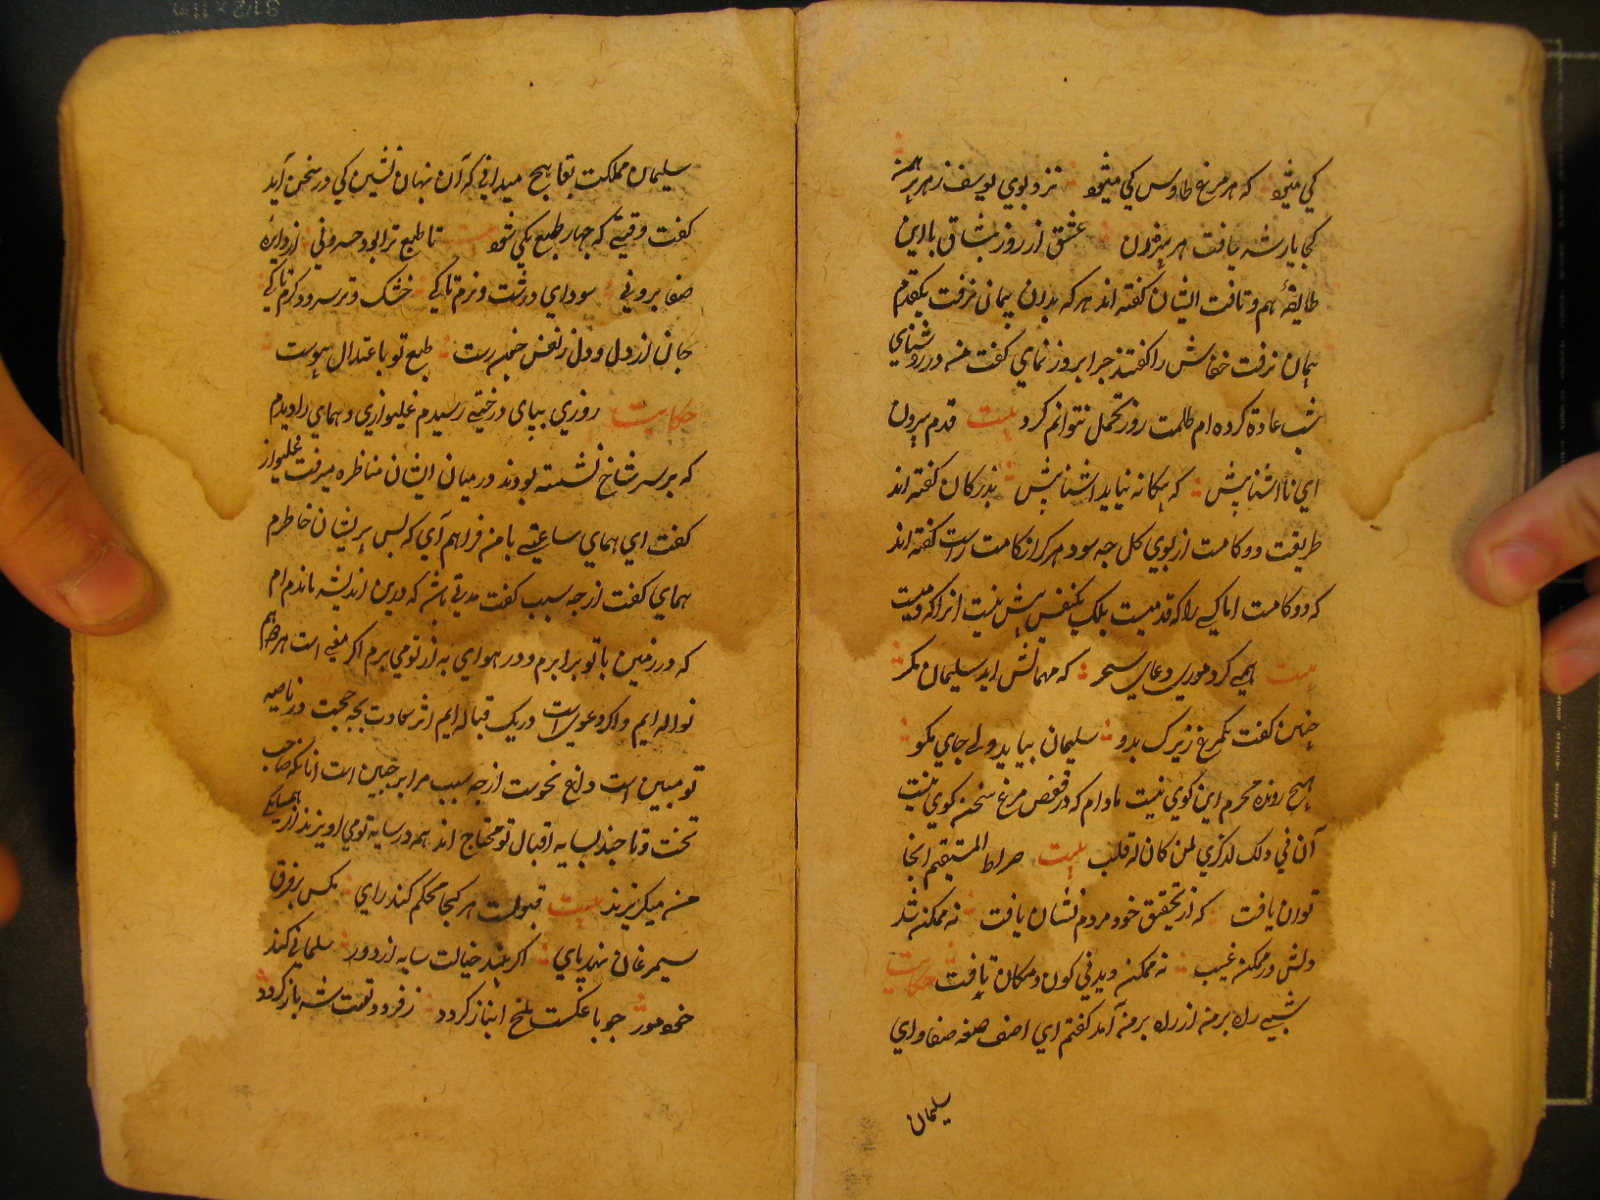 کی میشود که هر مرغ طاوس کی میشود نزد بوی یوسف ز هر پیرهن
کجا یار شد یافت هر بیزدن عشق از روز میثاق با این
طایفهٔ هم وثاقت ایشان گفته اند هر که بدین پیمان نرفت یکقدم
بیمان نرفت خفاش را گفتند چرا بروز ننمای گفت من در روشنای
شب عادة کرده ام ظلمت روز تحمل نتوانم کرد بیت قدم بیرون
ای نا اشنا پیش که بیکانه نیاید اشنا پیش بزرکان گفته اند
طریقت دو کامست از بوی کل چه سود مر کرا زکامست راست گفته اند
که دو کامست اما کسی را که قدمیست بلک یکنفس بیش نیست انرا که دمیست
بیت همی کرد موری دعای سحر که مهمانش اید سلیمان مکر
چنین گفت یکمرغ زیرک بدو سلیمان بیاید ولی جای کو
هیچ روزه محرم این کوی نیست مادام که در قفص مرغ سخن کوی نیست
آن فی ذلک لذکری لمن کان له قلب بیت صراط المستقیم انجا
توان یافت که از تحقیق خود مردم نشان یافت نه ممکن شد
دلش در ممکن غیب نه ممکن دید فی کون و مکان یافت حکایت
شبی راه بر من از راه بر من آمد گفتم ای اصف صفه صفا و ای
سلیمان
سلیمان مملکت بقا هیچ میدانی که آن نهان نشین کی در سخن آید
گفت وقتی که چهار طبع یکی شود بیت تا طبع ترا بود حرونی از دایره
صفا برونی سودای درشت و نرم تا کی خشک و تر سرد و کرم تا کی
جان از دل و دل ز نفس خبرست طبع تو با عتدال پوست
حکایت روزی بپای درختی رسیدم غلیوازی و همای را دیدم
که بر سر شاخ نشسته بودند در میان ایشان مناظره میرفت غلیواز
گفت ای همای ساعتی با من فراهم آی که بس پریشان خاطرم
همای گفت از چه سبب گفت مدتی باشد که درین اندیشه مانده ام
که در زمین با تو برابرم و در هوای به از تو می پرم اکر معنی است هر دو هم
نواله ایم و اکر دعویست در یک قباله ایم اثر سعادت بچه حجت در ناصیه
تو مبین است و داغ نحوست از چه سبب مرا بر جبین است انانکه صاحب
تخت و تاجند بسایه اقبال تو محتاج اند همه در سایه تو می اویزند از همسایکی
من میکریزند بیت قبولت هر کجا محکم کند رای مکس بر فرق
سیمرغان نهد پای اکر بیند خیالت سایه از دور سلیمانی کند
خود مور چو با عکست بلخ انباز کردد ز فر دولتت شه باز کردد